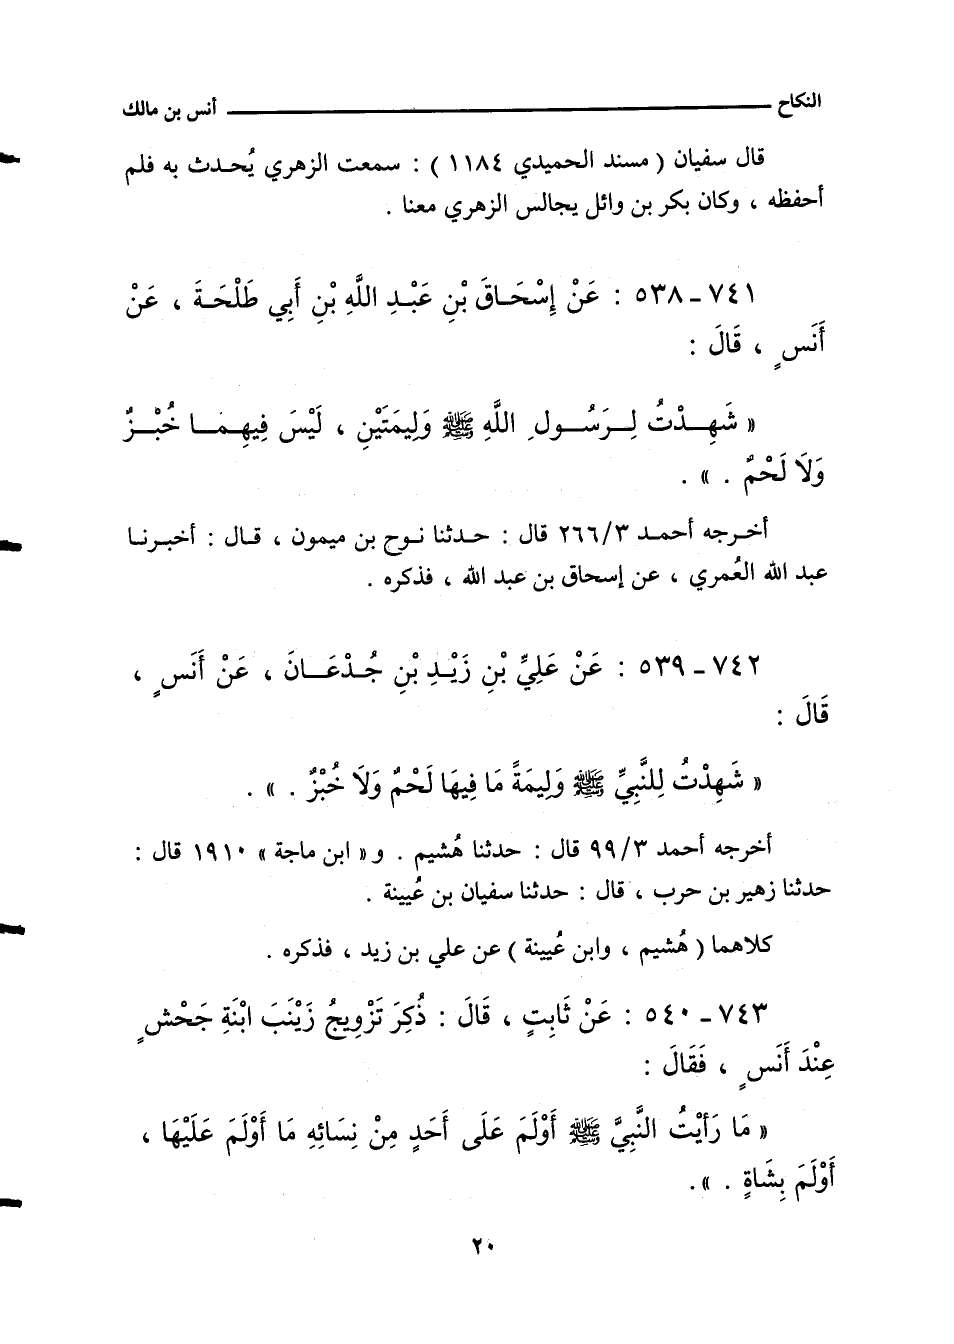 النكاح ــــــــــــــــــــــــــــ أنس بن مالك
قال سفيان ( مسند الحميدي ١١٨٤ ) : سمعت الزهري يُحدث به فلم
أحفظه ، وكان بكر بن وائل يجالس الزهري معنا .
٧٤١ - ٥٣٨ : عَنْ إِسْحَاقَ بْنِ عَبْدِ اللَّهِ بْنِ أَبِي طَلْحَةَ ، عَنْ
أَنَسٍ ، قَالَ :
« شَهِدْتُ لِرَسُولِ اللَّهِ ﷺ وَلِيمَتَيْنِ ، لَيْسَ فِيهِمَا خُبْزٌ
وَلَا لَحْمٌ . » .
أخرجه أحمد ٢٦٦/٣ قال : حدثنا نوح بن ميمون ، قال : أخبرنا
عبد الله العُمري ، عن إسحاق بن عبد الله ، فذكره .
٧٤٢ - ٥٣٩ : عَنْ عَلِيِّ بْنِ زَيْدِ بْنِ جُدْعَانَ ، عَنْ أَنَسٍ ،
قَالَ :
« شَهِدْتُ لِلنَّبِيِّ ﷺ وَلِيمَةً مَا فِيهَا لَحْمٌ وَلَا خُبْزٌ . » .
أخرجه أحمد ٩٩/٣ قال : حدثنا هُشيم . و« ابن ماجة » ١٩١٠ قال :
حدثنا زهير بن حرب ، قال : حدثنا سفيان بن عُيينة .
كلاهما ( هُشيم ، وابن عُيينة ) عن علي بن زيد ، فذكره .
٧٤٣ - ٥٤٠ : عَنْ ثَابِتٍ ، قَالَ : ذُكِرَ تَزْوِيجُ زَيْنَبَ ابْنَةِ جَحْشٍ
عِنْدَ أَنَسٍ ، فَقَالَ :
« مَا رَأَيْتُ النَّبِيَّ ﷺ أَوْلَمَ عَلَى أَحَدٍ مِنْ نِسَائِهِ مَا أَوْلَمَ عَلَيْهَا ،
أَوْلَمَ بِشَاةٍ . » .
٢٠